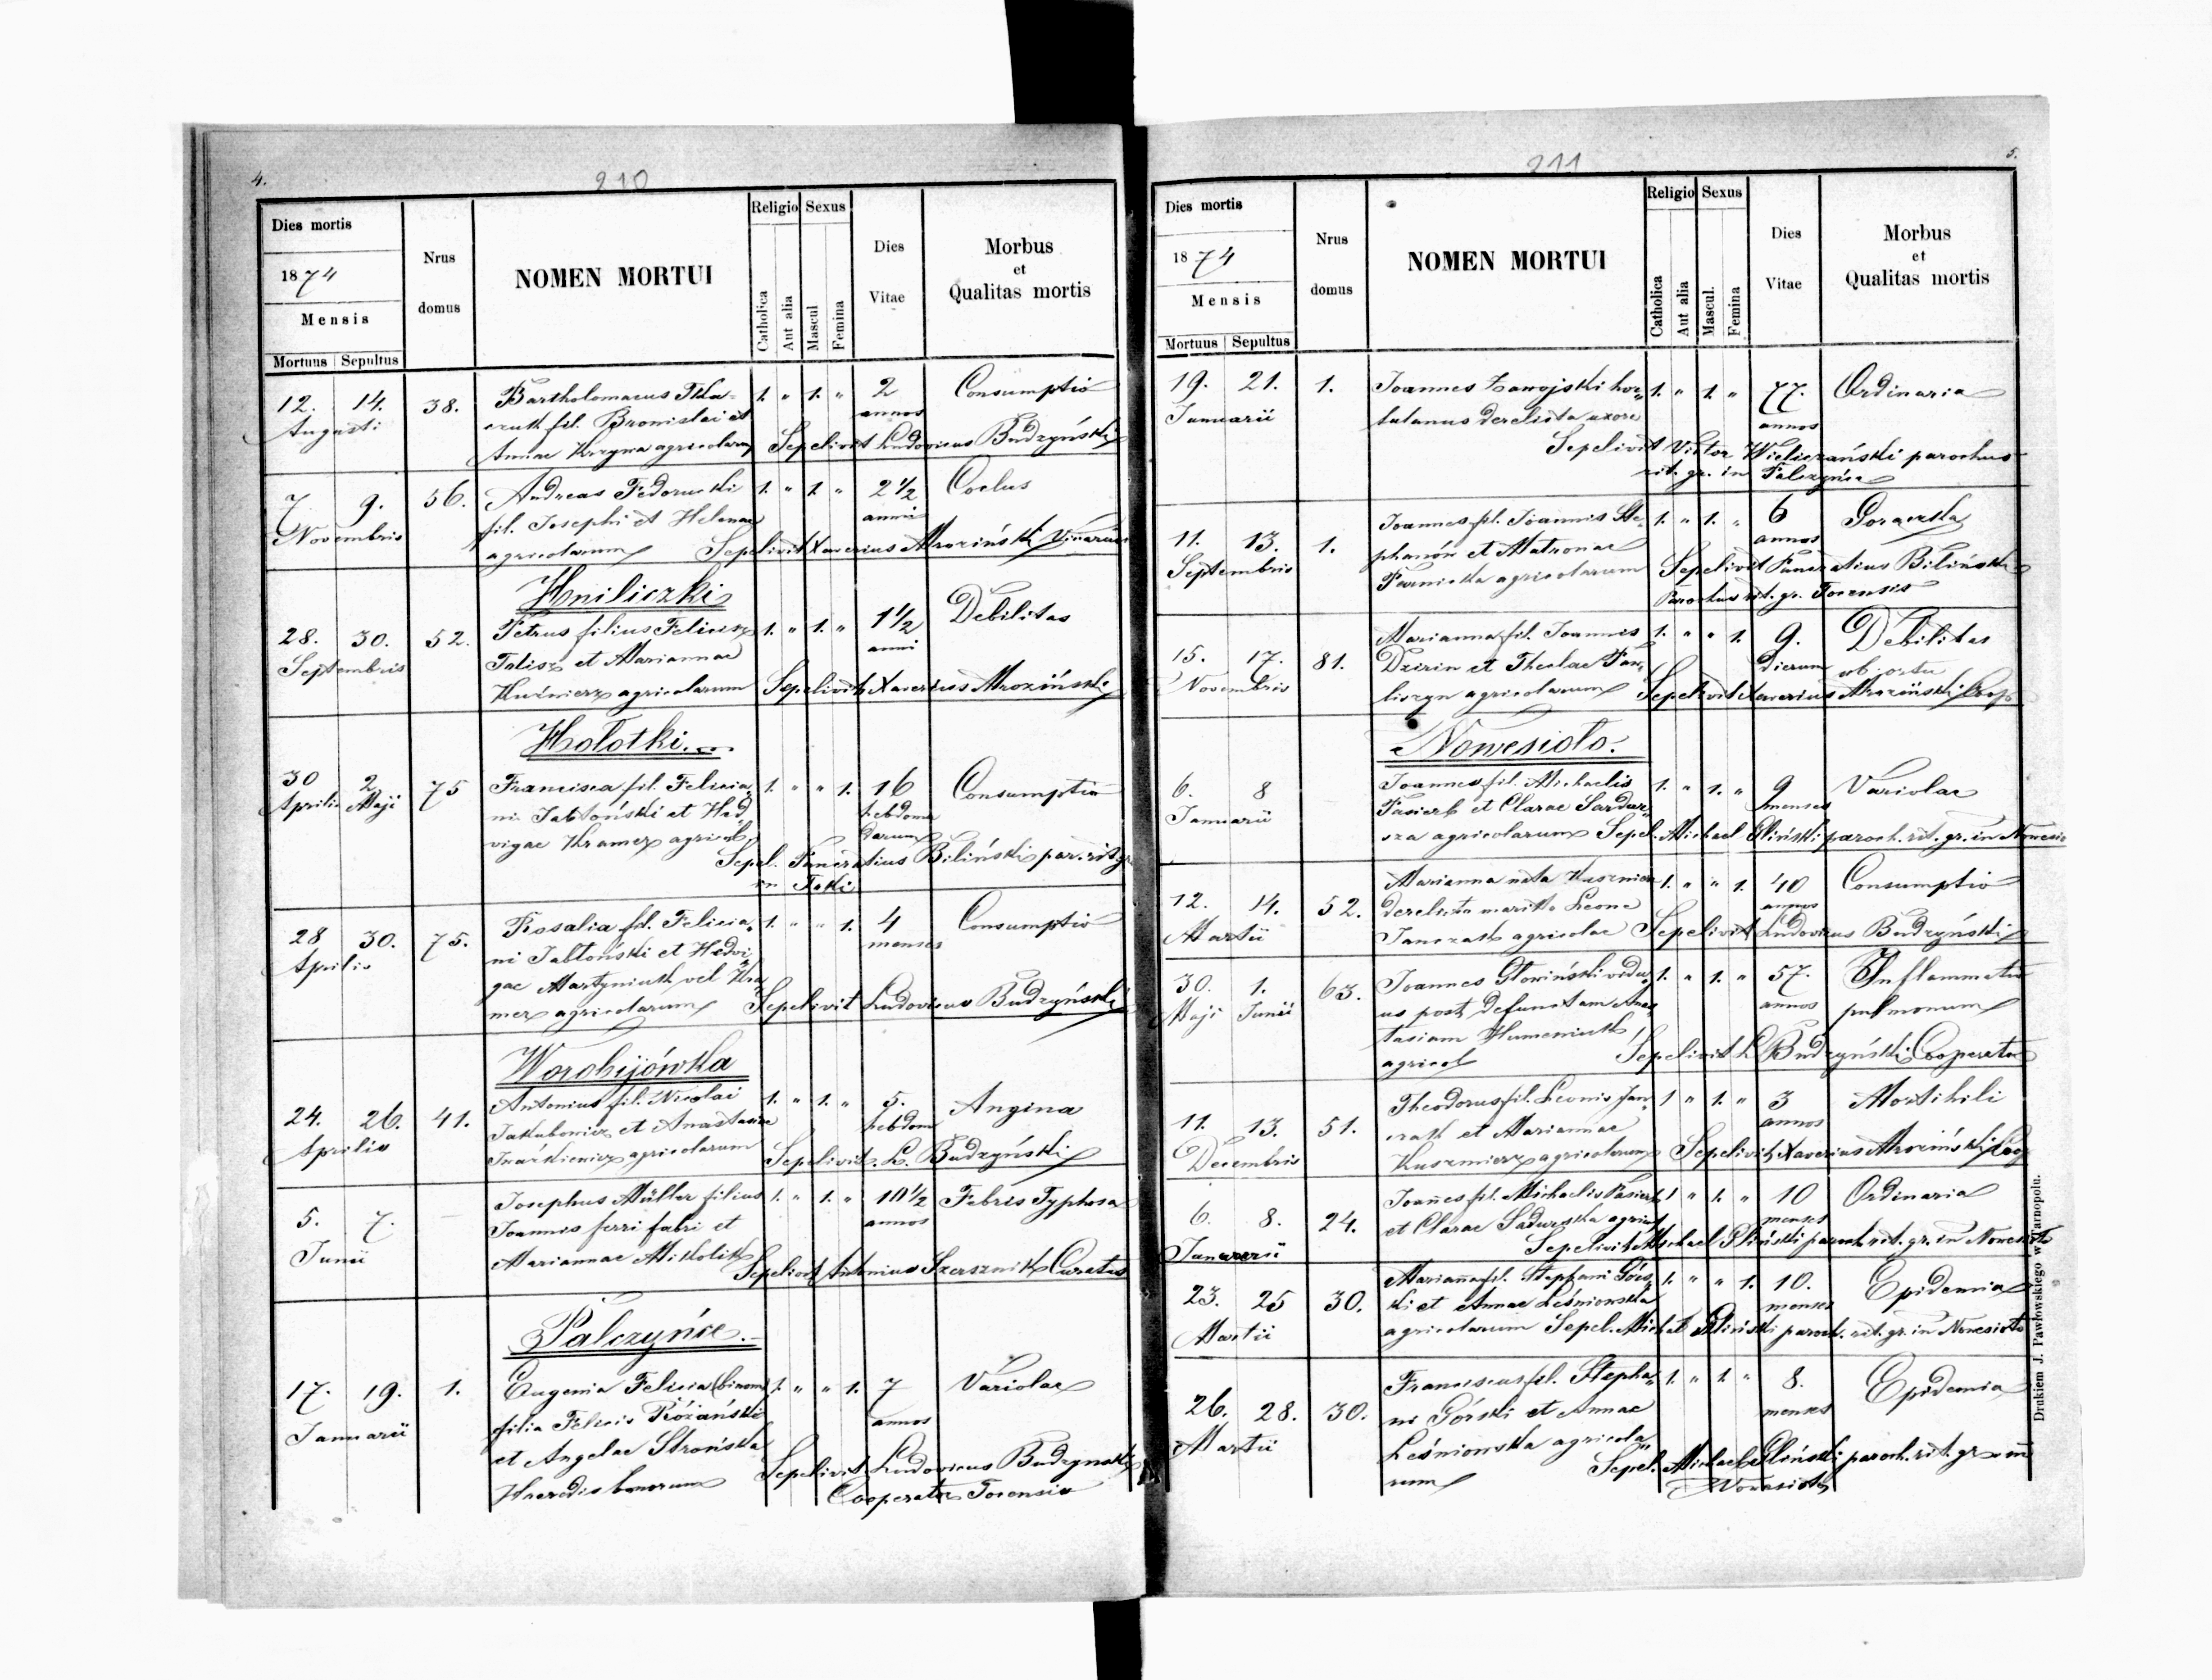 4.
210
Dies mortis
1874
Mensis
Mortuus Sepultus
Nrus domus
NOMEN MORTUI
Religio Sexus
Catholica Aut alia Mascul Femina
Dies Vitae
Morbus
et
Qualitas mortis
12. 14. 38. Bartholomaeus 1. " 1. " 2 Consumptio
Augusti fil. Bronislai et annos
Annae agricolarum Sepelivit Ludovicus Budzyński
7. 9. 56. Andreas Fedorucki 1. " 1. " 2 1/2 Coclus
Novembris fil. Josephi et Helenae anni
agricolarum Sepelivit Xaverius Mroziński Vicarius
Hniliczki
28. 30. 52. Petrus filius Felicis 1. " 1. " 1 1/2 Debilitas
Septembris Talisz et Mariannae anni
Kuśnierz agricolarum Sepelivit Xaverius Mroziński
Hołotki.
30 2 75 Francisca fil. Felicia- 1. " " 1. 16 Consumptio
Aprilis Maji ni Jabłoński et Hed- hebdoma
vigae Kramer agricol. darum
Sepel. Pancratius Biliński par. rit. gr.
in Toki
28 30. 75. Rosalia fil. Felicia- 1. " " 1. 4 Consumptio
Aprilis ni Jabłoński et Hedvi- menses
gae Martyniuk vel Kra-
mer agricolarum Sepelivit Ludovicus Budzyński
Worobijówka
24. 26. 41. Antonius fil. Nicolai 1. " 1. " 5. Angina
Aprilis Jakubowicz et Anastasiae hebdom
Iwaśkiewicz agricolarum Sepelivit L. Budzyński
5. 7. — Josephus Müller filius 1. " 1. " 10 1/2 Febris Typhosa
Junii Joannis ferri fabri et annos
Mariannae Mikolik Sepelivit Antonius Szersznik Curatus
Palczyńce.
17. 19. 1. Eugenia Felicia (binom) 1. " " 1. 7 Variolae
Januarii filia Felicis Różański annos
et Angelae Strońska
Haeredis bonorum Sepelivit Ludovicus Budzynski
Cooperator Tocensis
5.
211
Dies mortis
1874
Mensis
Mortuus Sepultus
Nrus domus
NOMEN MORTUI
Religio Sexus
Catholica Aut alia Mascul. Femina
Dies Vitae
Morbus
et
Qualitas mortis
19. 21. 1. Joannes Zawojski hor- 1. " 1. " 77. Ordinaria
Januarii tulanus derelicta uxore annos
Sepelivit Victor Wieliczański parochus
rit. gr. in Palczyńce
11. 13. 1. Joannes fil. Joannis Ste- 1. " 1. " 6 Goraczka
Septembris phanów et Matronae annos
agricolarum Sepelivit Pancratius Biliński
Parochus rit. gr. Tocensis
15. 17. 81. Marianna fil. Joannis 1. " " 1. 9. Debilitas
Novembris Dzirin et Theclae Paw- dierum ab ortu
liszyn agricolarum Sepelivit Xaverius Mroziński Coop.
Nowesioło.
6. 8 Joannes fil. Michaelis 1. " 1. " 9 Variolae
Januarii Pasierb et Clarae menses
agricolarum Sepel. Michael Gliński paroch. rit. gr. in Nowesio
12. 14. 52. Marianna nata Kuszmierz 1. " " 1. 40 Consumptio
Martii derelicto marito Leone annos
Janczak agricolae Sepelivit Ludovicus Budzyński
30. 1. 63. Joannes Głowiński vidu- 1. " 1. " 57. Inflammatio
Maji Junii us post defunctam Anas- annos pulmonum
tasiam Humeniuk
agricol Sepelivit L. Budzyński Cooperator
11. 13. 51. Theodorus fil. Leonis Jan- 1 " 1. " 3 Morbihili
Decembris czak et Mariannae annos
Kuszmierz agricolarum Sepelivit Xaverius Mroziński Coop
6. 8. 24. Joañes fil. Michaelis Pasierb 1 " 1. " 10 Ordinaria
Januarii et Clarae Sadurska agricol menses
Sepelivit Michael Gliński paroch. rit. gr. in Nowesioło
23. 25 30. Mariaña fil. Stephani Górs- 1. " " 1. 10. Epidemia
Martii ki et Annae Leśniowska menses
agricolarum Sepel. Michael Gliński paroch. rit. gr. in Nowesioło
26. 28. 30. Franciscus fil. Stepha- 1. " 1. " 8. Epidemia
Martii ni Górski et Annae menses
Leśniowska agricola-
rum Sepel. Michael Gliński paroch. rit. gr. in
Nowesioło
Drukiem J. Pawłowskiego w Tarnopolu.